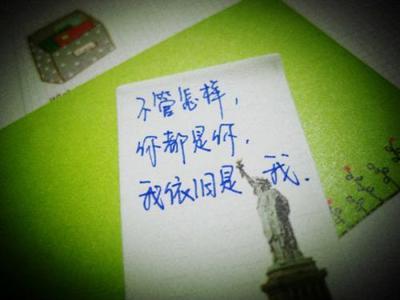 不管怎样,
你都是你.
我依旧是 我.